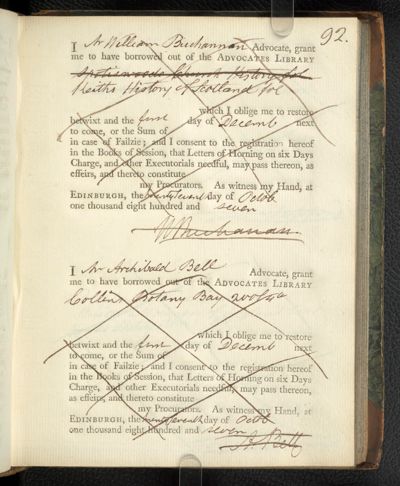 92.
I Mr William Buchannan Advocate, grant
me to have borrowed out of the ADVOCATES LIBRARY
Spotiswoods Church History fol
Keiths History of Scotland fol
which I oblige me to restore
betwixt and the first day of Decemb next
to come, or the Sum of
in case of Failzie; and I consent to the registration hereof
in the Books of Session, that Letters of Horning on six Days
Charge, and other Executorials needful, may pass thereon, as
effeirs, and thereto constitute
my Procurators. As witness my Hand, at
EDINBURGH, the twenty seventh day of Octob
one thousand eight hundred and seven
W Buchanan.
I Mr Archibald Bell Advocate, grant
me to have borrowed out of the ADVOCATES LIBRARY
Collins Botany Bay 2 vols 4to
which I oblige me to restore
betwixt and the first day of Decemb next
to come, or the Sum of
in case of Failzie; and I consent to the registration hereof
in the Books of Session, that Letters of Horning on six Days
Charge, and other Executorials needful, may pass thereon,
as effeirs, and thereto constitute
my Procurators. As witness my Hand, at
EDINBURGH, the twenty seventh day of Octob
one thousand eight hundred and seven
A Bell